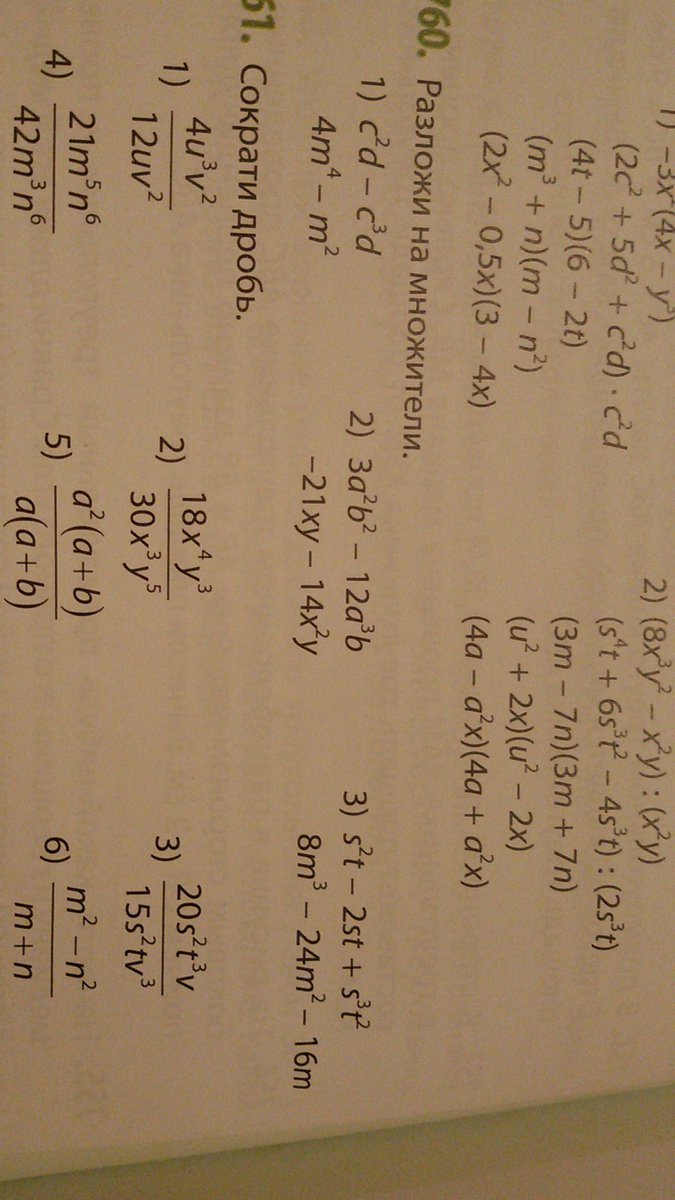 1) −3x²(4x − y³)
(2c² + 5d² + c²d) · c²d
(4t − 5)(6 − 2t)
(m³ + n)(m − n²)
(2x² − 0,5x)(3 − 4x)
2) (8x³y² − x²y) : (x²y)
(s⁴t + 6s³t² − 4s³t) : (2s³t)
(3m − 7n)(3m + 7n)
(u² + 2x)(u² − 2x)
(4a − a²x)(4a + a²x)
760. Разложи на множители.
1) c²d − c³d
4m⁴ − m²
2) 3a²b² − 12a³b
−21xy − 14x²y
3) s²t − 2st + s³t²
8m³ − 24m² − 16m
61. Сократи дробь.
1) 4u³v²
12uv²
2) 18x⁴y³
30x³y⁵
3) 20s²t³v
15s²tv³
4) 21m⁵n⁶
42m³n⁶
5) a²(a+b)
a(a+b)
6) m² − n²
m+n